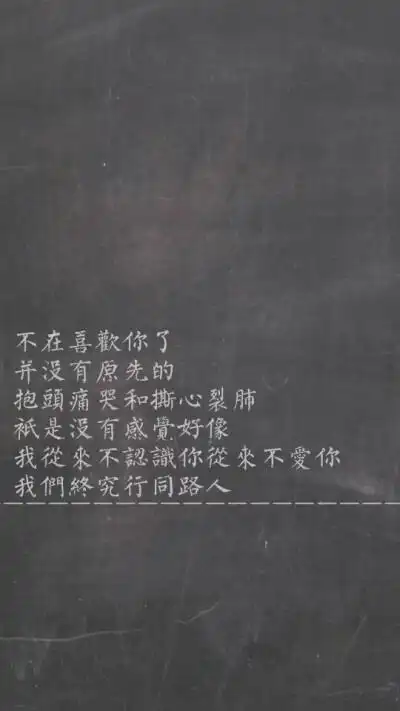 不在喜歡你了
并沒有原先的
抱頭痛哭和撕心裂肺
衹是沒有感覺好像
我從來不認識你從來不愛你
我們終究行同路人